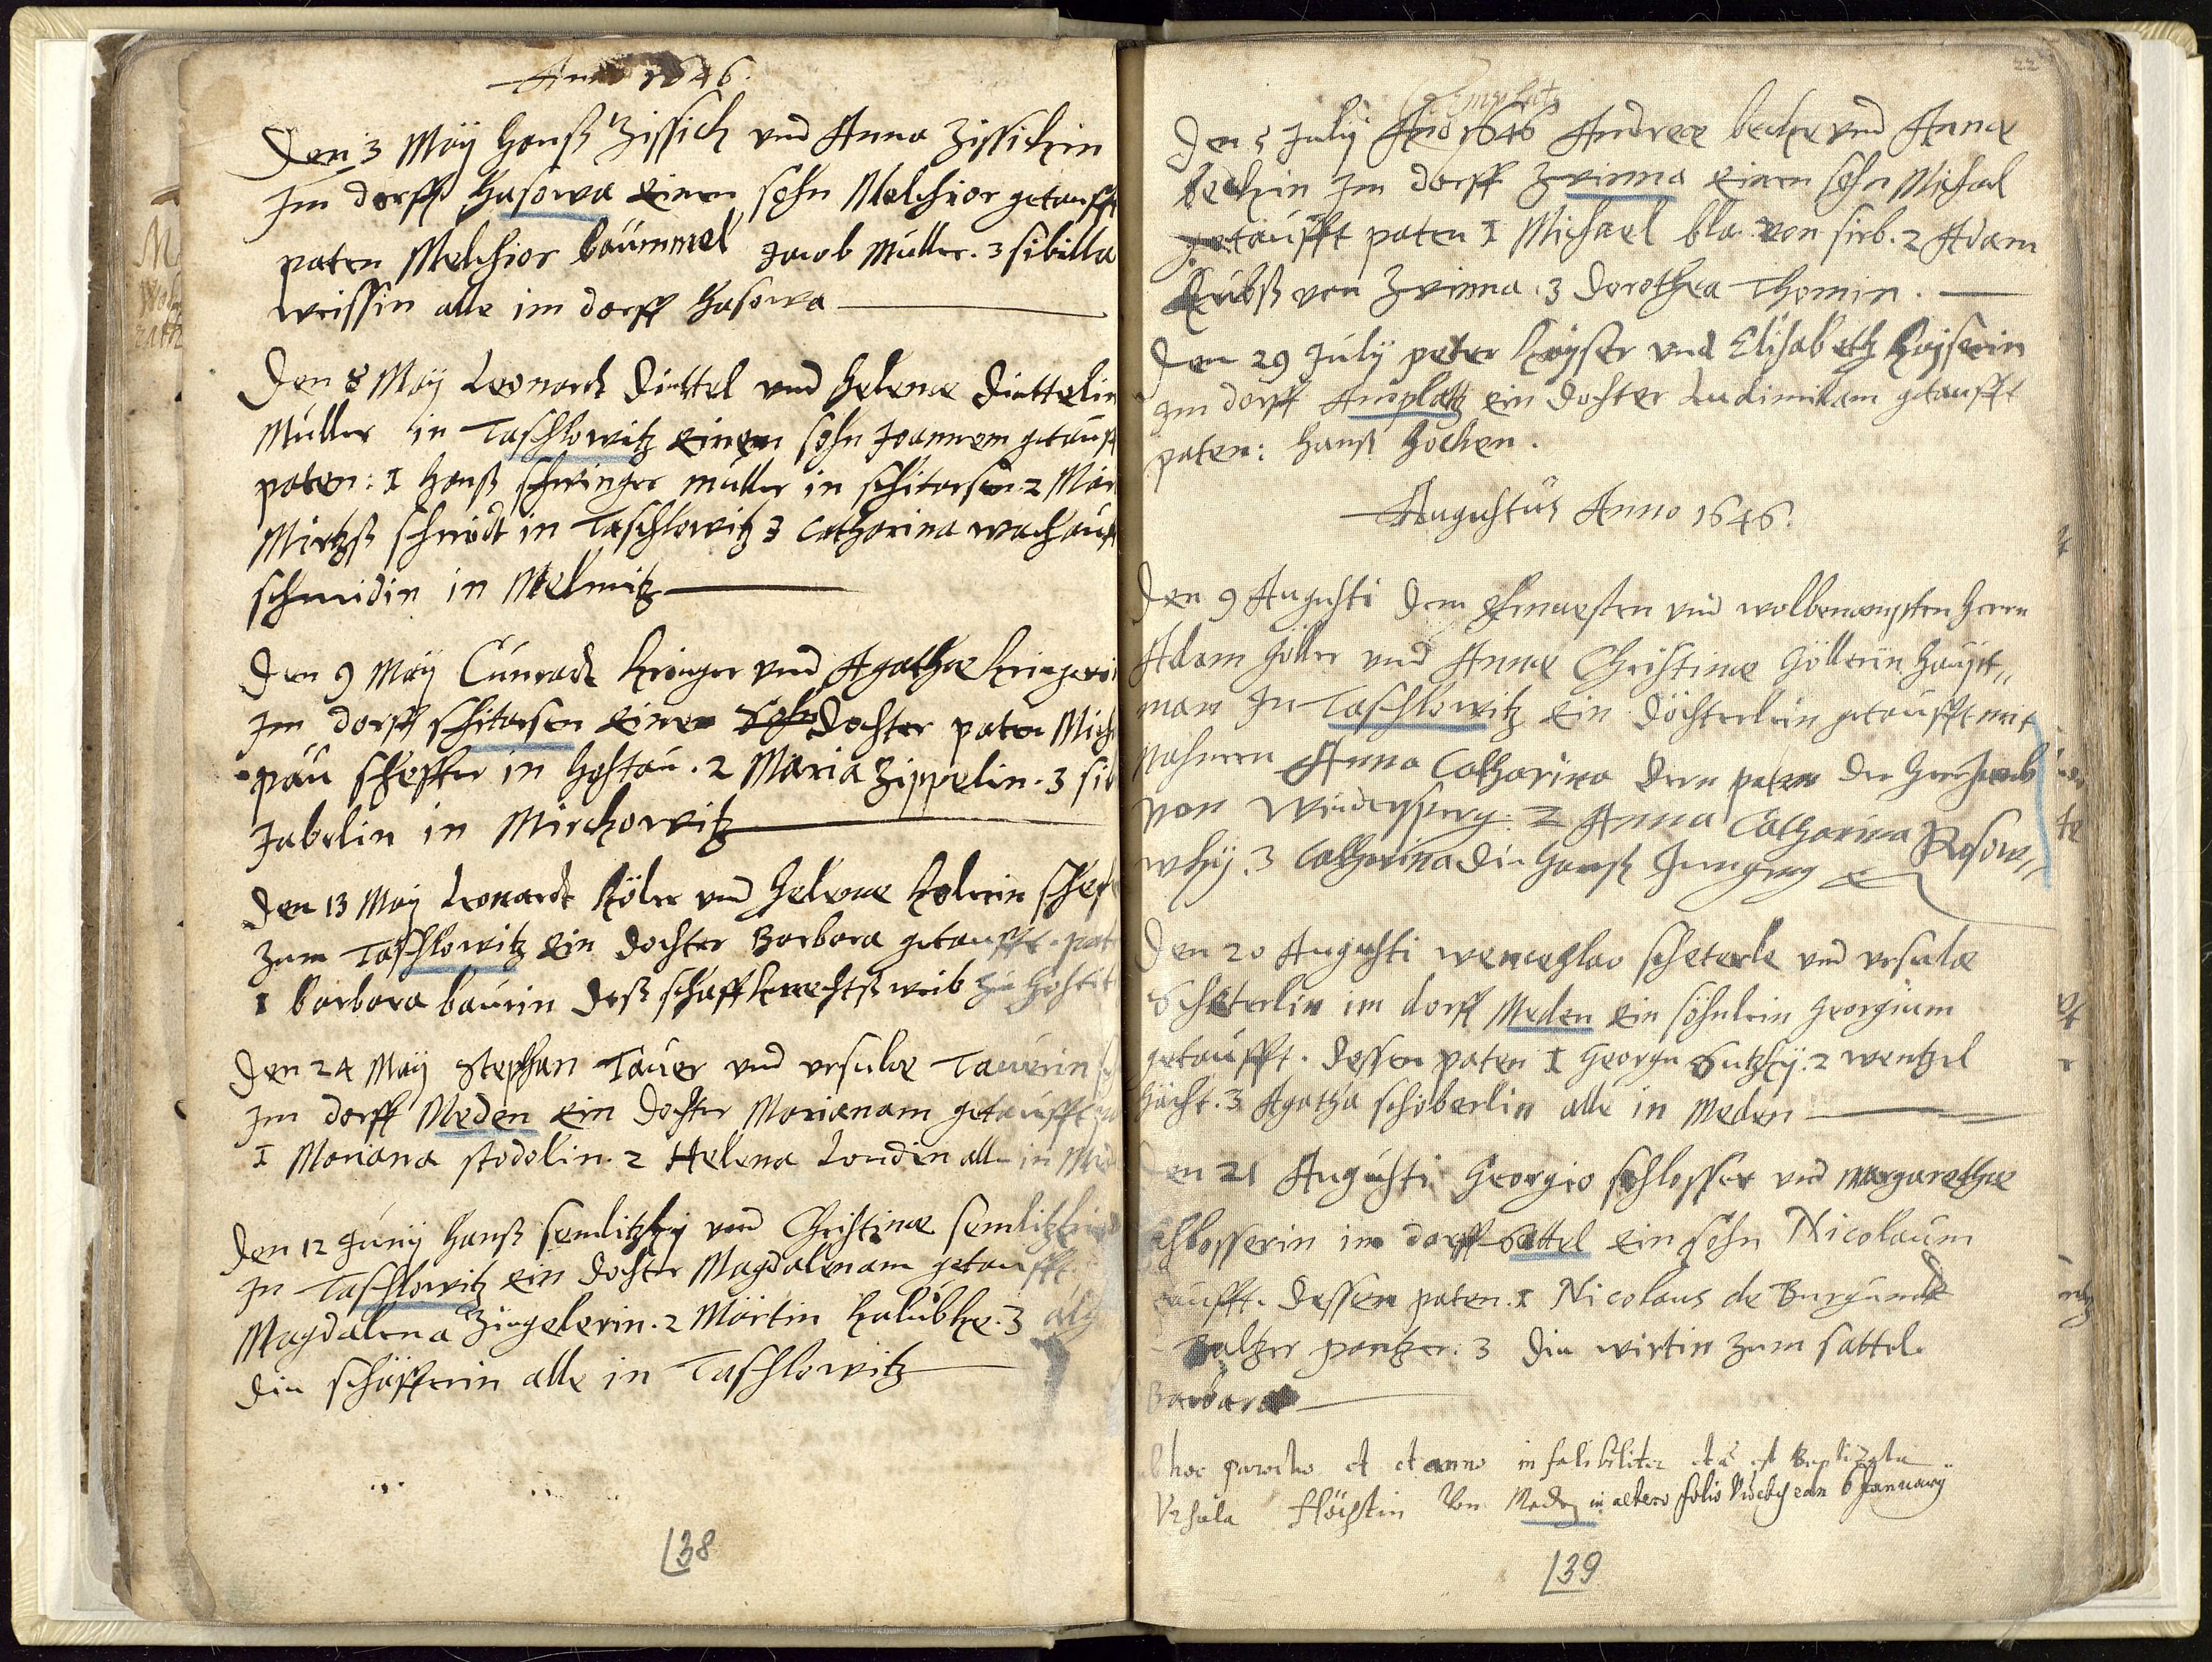 Anno 1646.
Den 3 Maÿ Hanß Zissich und Anna Zissichin
Im dorff Hasowa einen sohn Melchior getaufft
paten Melchior baümmel Jacob Müller. 3 sibilla
weissin alle im dorff Hasowa
Den 8 Maÿ Leonardt Düttel und Helenae Düttelin
Müller in Taschlowitz einen sohn Joannem getauff
paten: 1 Hanß schwinger müller in schitarsen 2 Mar
schmidt in Taschlowitz 3 Catharina
schmidin in Melmitz
Den 9 Maÿ Cünradt Krieger und Agathae Kriegerin
Im dorff schitarsen einen dochter paten Mich
paü scheffer in Hostaü. 2 Maria Zippelin. 3 sib
Jabelin in Mirckowitz
Den 13 Maÿ Leonardt Köler und Helenae Kolerin schef
zum Taschlowitz ein dochter Barbara getaufft. pat
1 barbara baürin deß schaffknechtß weib zu Hostit
Den 24 Maÿ Stephan Taüer und ursulae Tauerin
Im dorff Meden ein dochter Marianam getaufft
1 Mariana stodolin. 2 Helena Loudin alle in Me
Den 12 Junÿ Hanß semlitzkÿ und Christinae semlitzki
In Taschlowitz ein dochter Magdalenam getaufft
Magdalena Züngelerin. 2 Martin Kalübke. 3
die schäfferin alle in Taschlowitz
138
22
Amplatz
Den 5 Julÿ Ano 1646 Andreae becke und Annae
beckin Im dorff Zwinna einen sohn Michael
getaüfft paten 1 Michael bla von sirb. 2 Adam
Kübß von Zwinna. 3 Dorothea Thomin.
Den 29 Julÿ peter Kaÿser und Elisabeth Kaÿserin
Im dorff Amplatz ein dochter Ludimilam getaufft
paten: Hanß Hocken.
Augustüs Anno 1646.
Den 9 Augusti dem und Herrn
Adam Göller und Annae Christinae Göllerin Haüpt„
man In Taschlowitz ein döchterlein getaüfft mit
Nahmen Anna Catharina deren paten der Herr Jacob
von 2 Anna Catharina Rosow„
wskÿ. 3 Catharina die Hanß
Den 20 Augusti wenceslao scheterle und ursulae
Scheterlin im dorff Meden ein söhnlein Georgium
getaüfft. dessen paten 1 Georgn Sutzkÿ. 2 wentzel
Höcht. 3 Agatha schöberlin alle in Meden
Den 21 Augusti Georgio schlosser und Margarethae
schlosserin im dorff Sattel ein sohn Nicolaum
taufft. dessen paten. 1 Nicolaus de Burgunde
baltzer pantzer: 3 die wirtin zum sattel
Barbara
hoc parocho et anno infalibiliter est Baptizata
Ursula Höchtin Von Meden in altero folio 6 Januarÿ
139